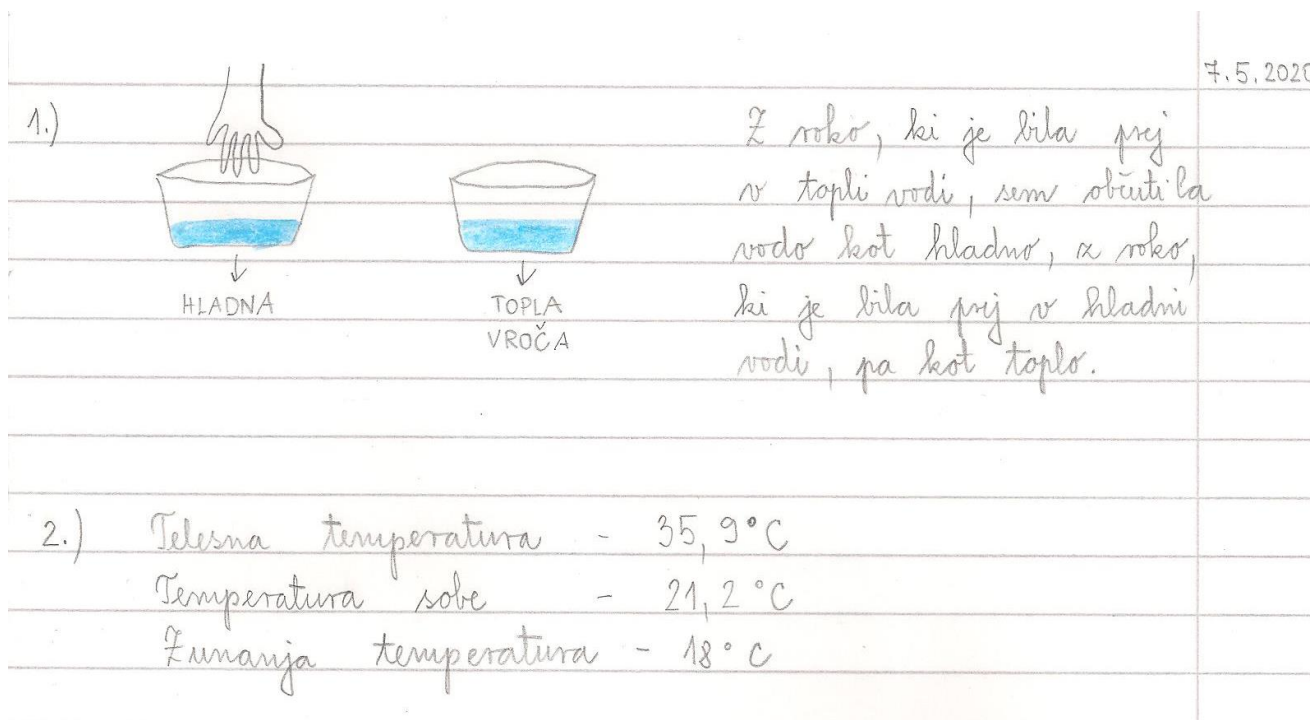 7.5.2020
1.)
HLADNA
TOPLA
VROČA
Z roko, ki je bila prej
v topli vodi, sem občutila
vodo kot hladno, z roko,
ki je bila prej v hladni
vodi, pa kot toplo.
2.) Telesna temperatura - 35,9°C
Temperatura sobe - 21,2°C
Zunanja temperatura - 18°C